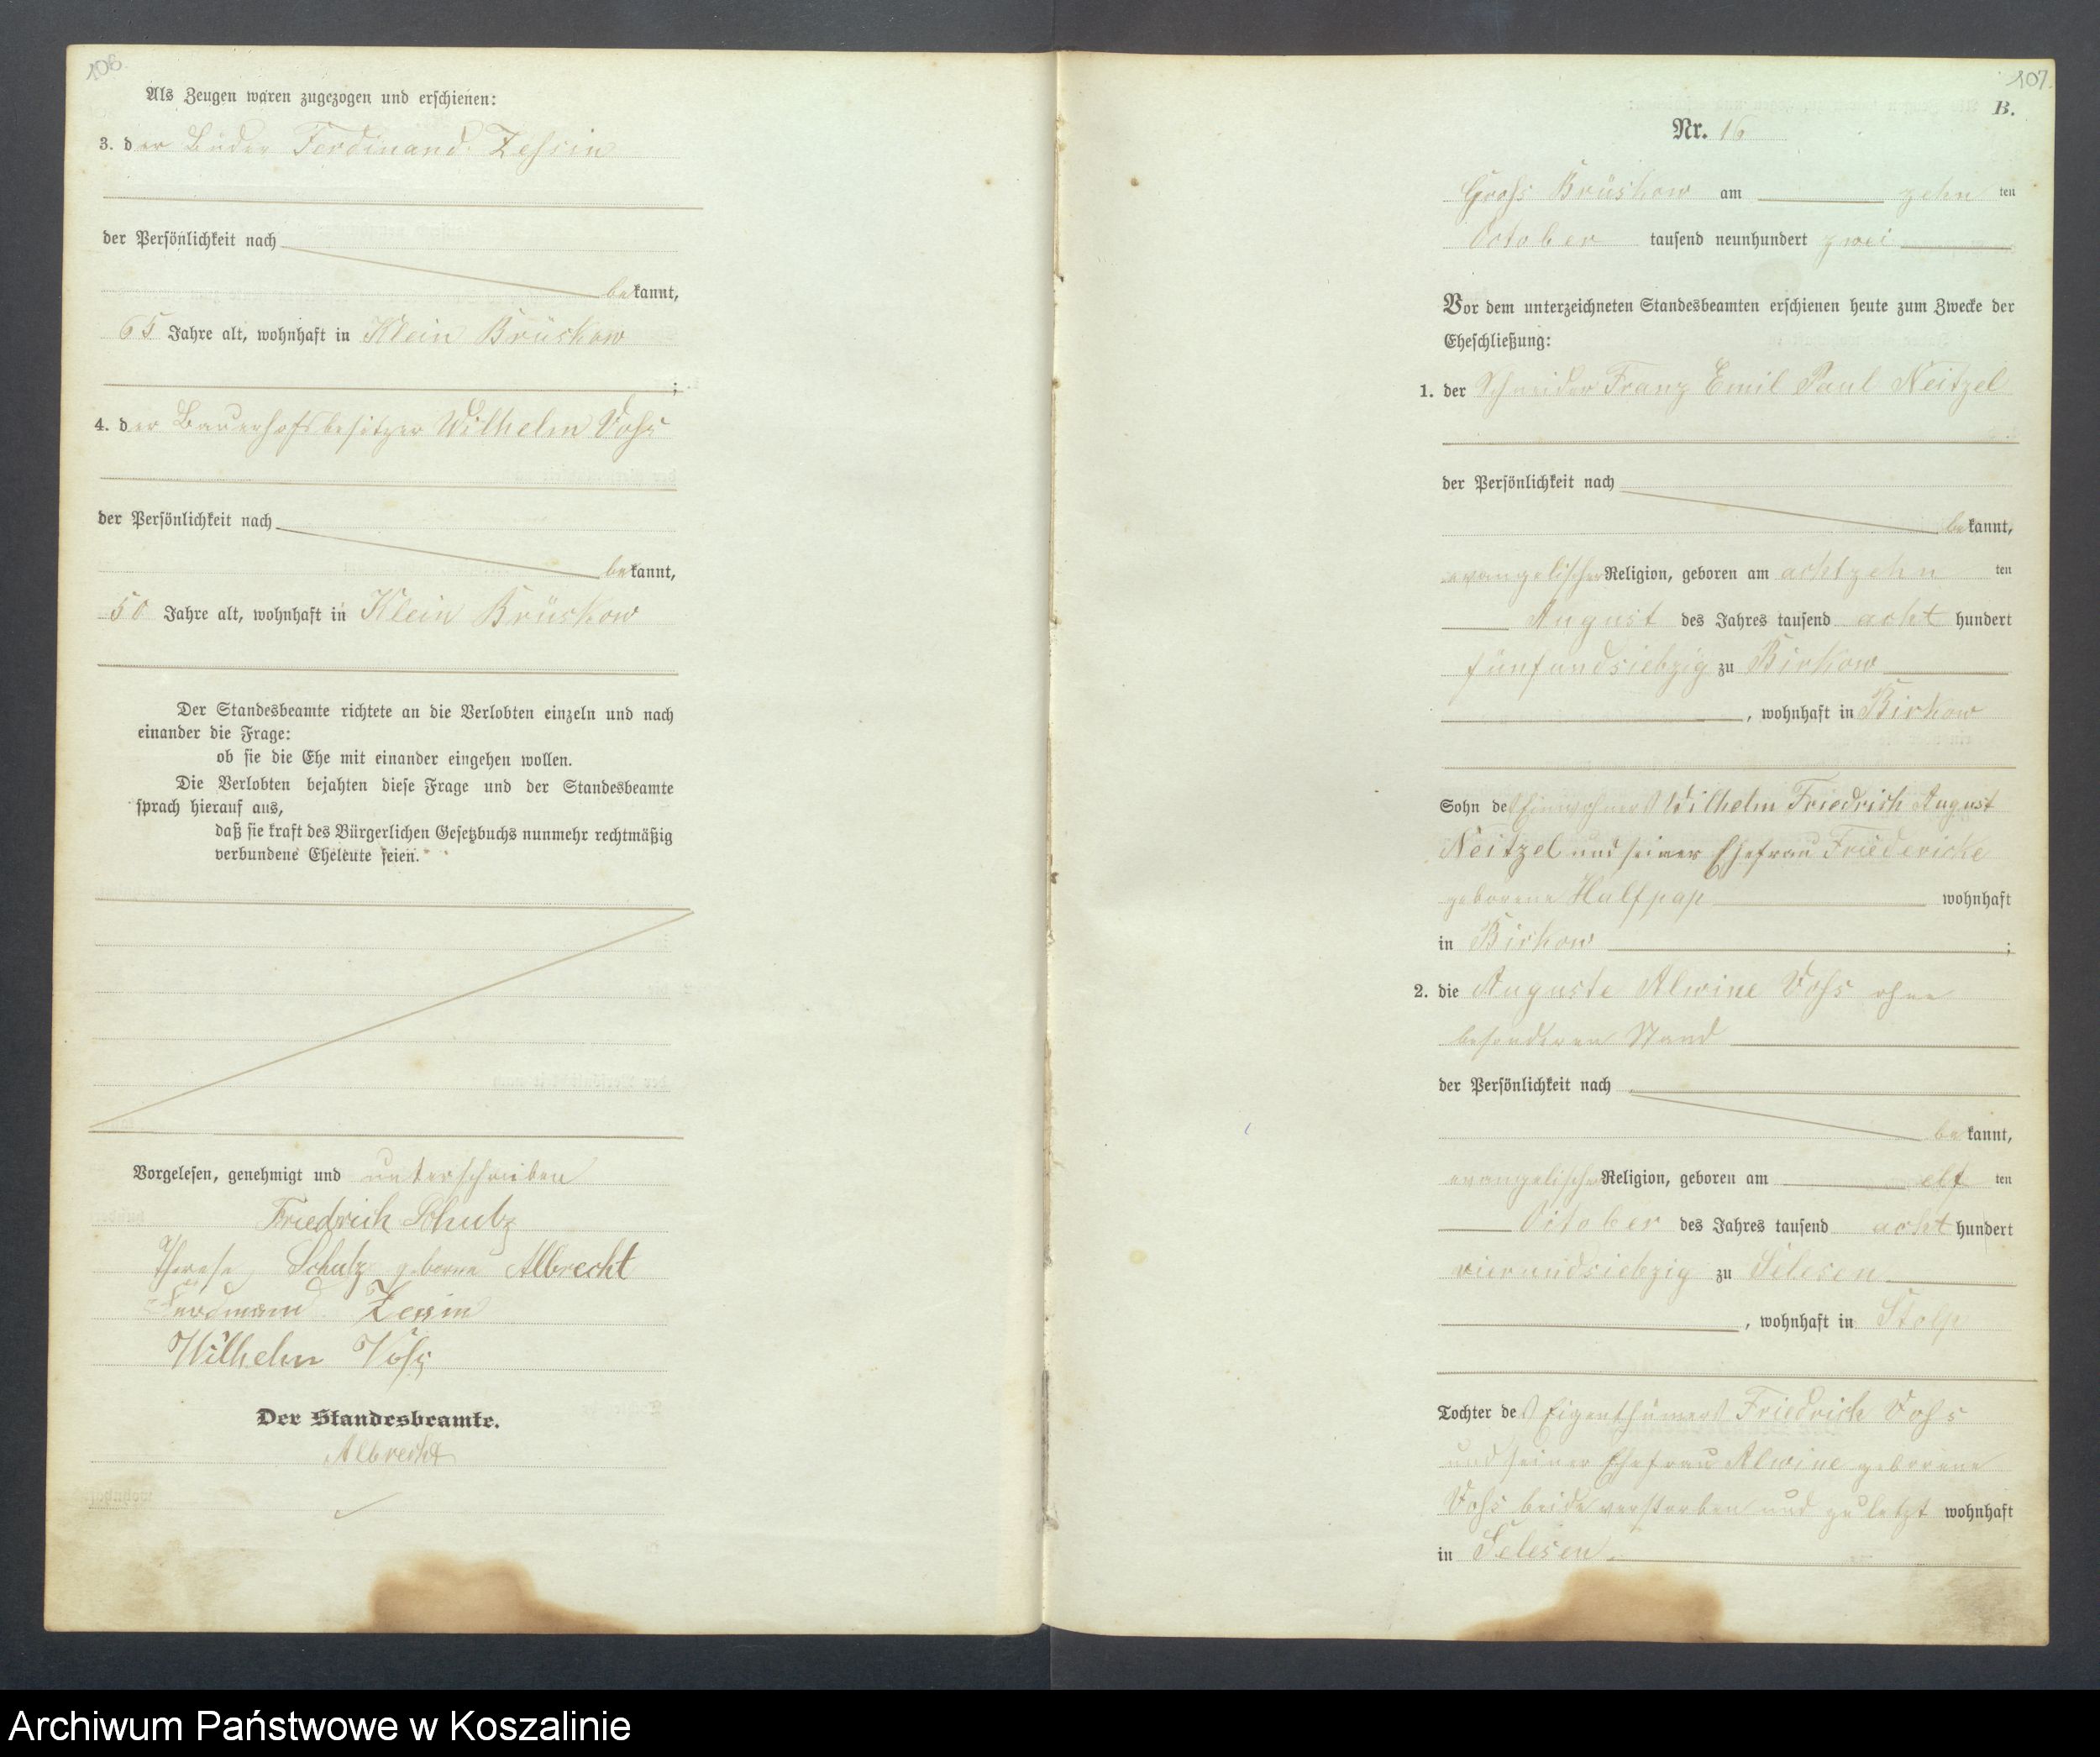 106.
Als Zeugen waren zugezogen und erschienen:
3. der Ferdinand Zessin
der Persönlichkeit nach
bekannt,
65 Jahre alt, wohnhaft in Klein Brüskow
;
4. der Bauerhofsbesitzer Wilhelm Voß
der Persönlichkeit nach
bekannt,
50 Jahre alt, wohnhaft in Klein Brüskow
Der Standesbeamte richtete an die Verlobten einzeln und nach
einander die Frage:
ob sie die Ehe mit einander eingehen wollen.
Die Verlobten bejahten diese Frage und der Standesbeamte
sprach hierauf aus,
daß sie kraft des Bürgerlichen Gesetzbuchs nunmehr rechtmäßig
verbundene Eheleute seien.
Vorgelesen, genehmigt und unterschrieben
Friedrich Schulz
Therese Schulz geborne Albrecht
Ferdinand Zessin
Wilhelm Voß
Der Standesbeamte.
Albrecht
107.
B.
Nr. 16
Groß Brüskow am zehn ten
October tausend neunhundert zwei
Vor dem unterzeichneten Standesbeamten erschienen heute zum Zwecke der
Eheschließung:
1. der Schneider Franz Emil Paul Neitzel
der Persönlichkeit nach
bekannt,
evangelischer Religion, geboren am achtzehn ten
August des Jahres tausend acht hundert
fünfundsiebzig zu Birkow
, wohnhaft in Birkow
Sohn des Einwohners Wilhelm Friedrich August
Neitzel und seiner Ehefrau Friedericke
geborene Halfpap wohnhaft
in Birkow ;
2. die Auguste Alwine Voß ohne
besonderen Stand
der Persönlichkeit nach
bekannt,
evangelischer Religion, geboren am elf ten
October des Jahres tausend acht hundert
vierundsiebzig zu Silesen
, wohnhaft in Stolp
Tochter des Eigenthümers Friedrich Voß
und seiner Ehefrau Alwine geborene
Voß beide verstorben und zuletzt wohnhaft
in Selesen.
Archiwum Państwowe w Koszalinie